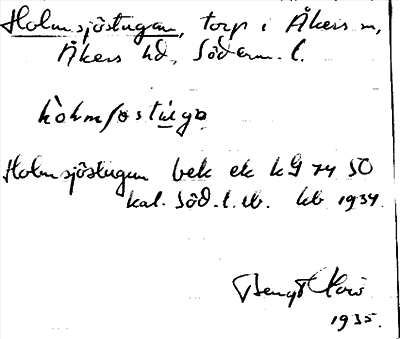 Holmsjöstugan, torp i Åkers sn,
Åkers hd, Söderm. l.
hòlmʃøstu̇ga
Holmsjöstugan bek ek kG 74 SO
kal. Söd. l. rb. kb 1934.
Bengt
1935.